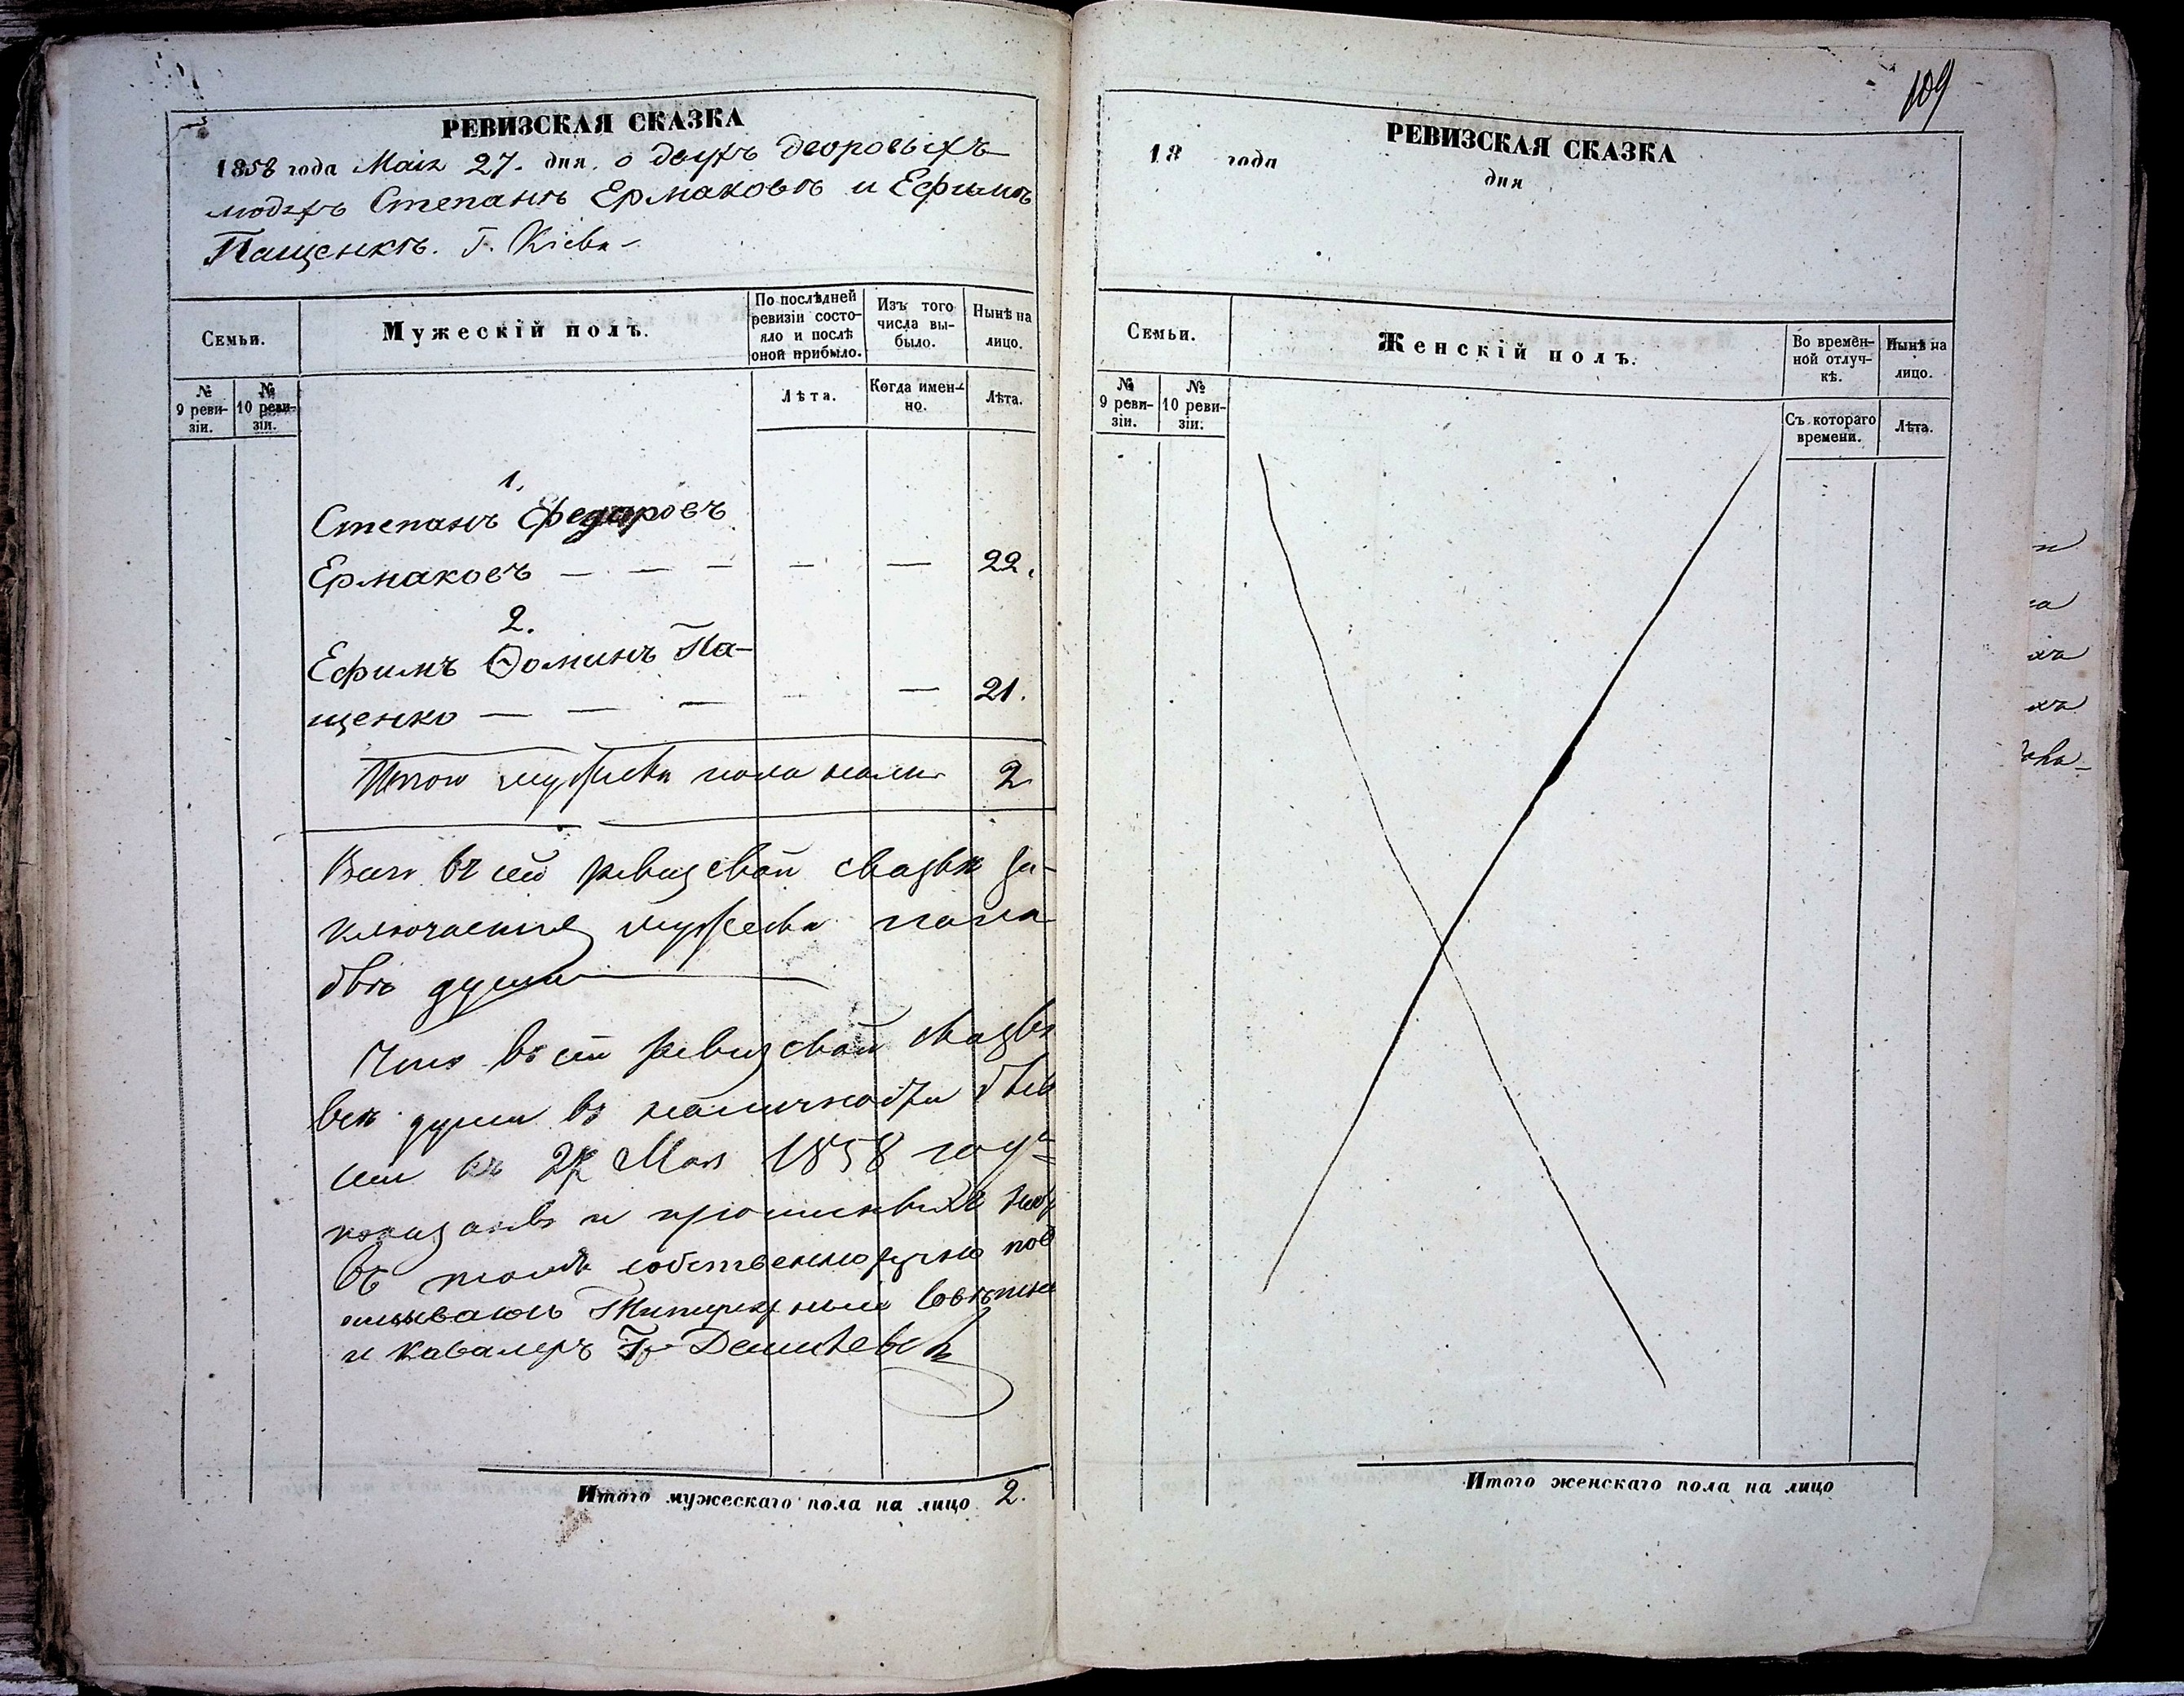 РЕВИЗСКАЯ СКАЗКА
1858 года Маія 27. дня. о двухъ дворовыхъ
людяхъ Степанѣ Ермаковѣ и Ефимѣ
Пащенкѣ. Г. Кіева
Семьи.
Мужескій полъ.
По послѣдней ревизіи состояло и послѣ оной прибыло.
Изъ того числа вы-было.
Нынѣ на лицо.
№ 9 реви-зіи.
№ 10 реви-зіи.
Лѣта.
Когда имен-но.
Лѣта.
1.
Степанъ Федоровъ
Ермаковъ — — — — — 22.
2.
Ефимъ Ѳоминъ Па-
щенко — — — — — 21.
Итого мужеска пола 2
Всего въ сей ревизской сказкѣ за-
ключается мужеска пола
двѣ души
Что въ сей ревизской сказкѣ
всѣ души въ наличности
27 Мая 1858 года
показаны и
въ томъ собственноручно под
писываюсь Титулярный Совѣтни
и Кавалеръ
Итого мужескаго пола на лицо 2.
109
РЕВИЗСКАЯ СКАЗКА
18 года
дня
Семьи.
Женскій полъ.
Во времен-ной отлуч-кѣ.
Нынѣ на лицо.
№ 9 реви-зіи.
№ 10 реви-зіи.
Съ котораго времени.
Лѣта.
Итого женскаго пола на лицо